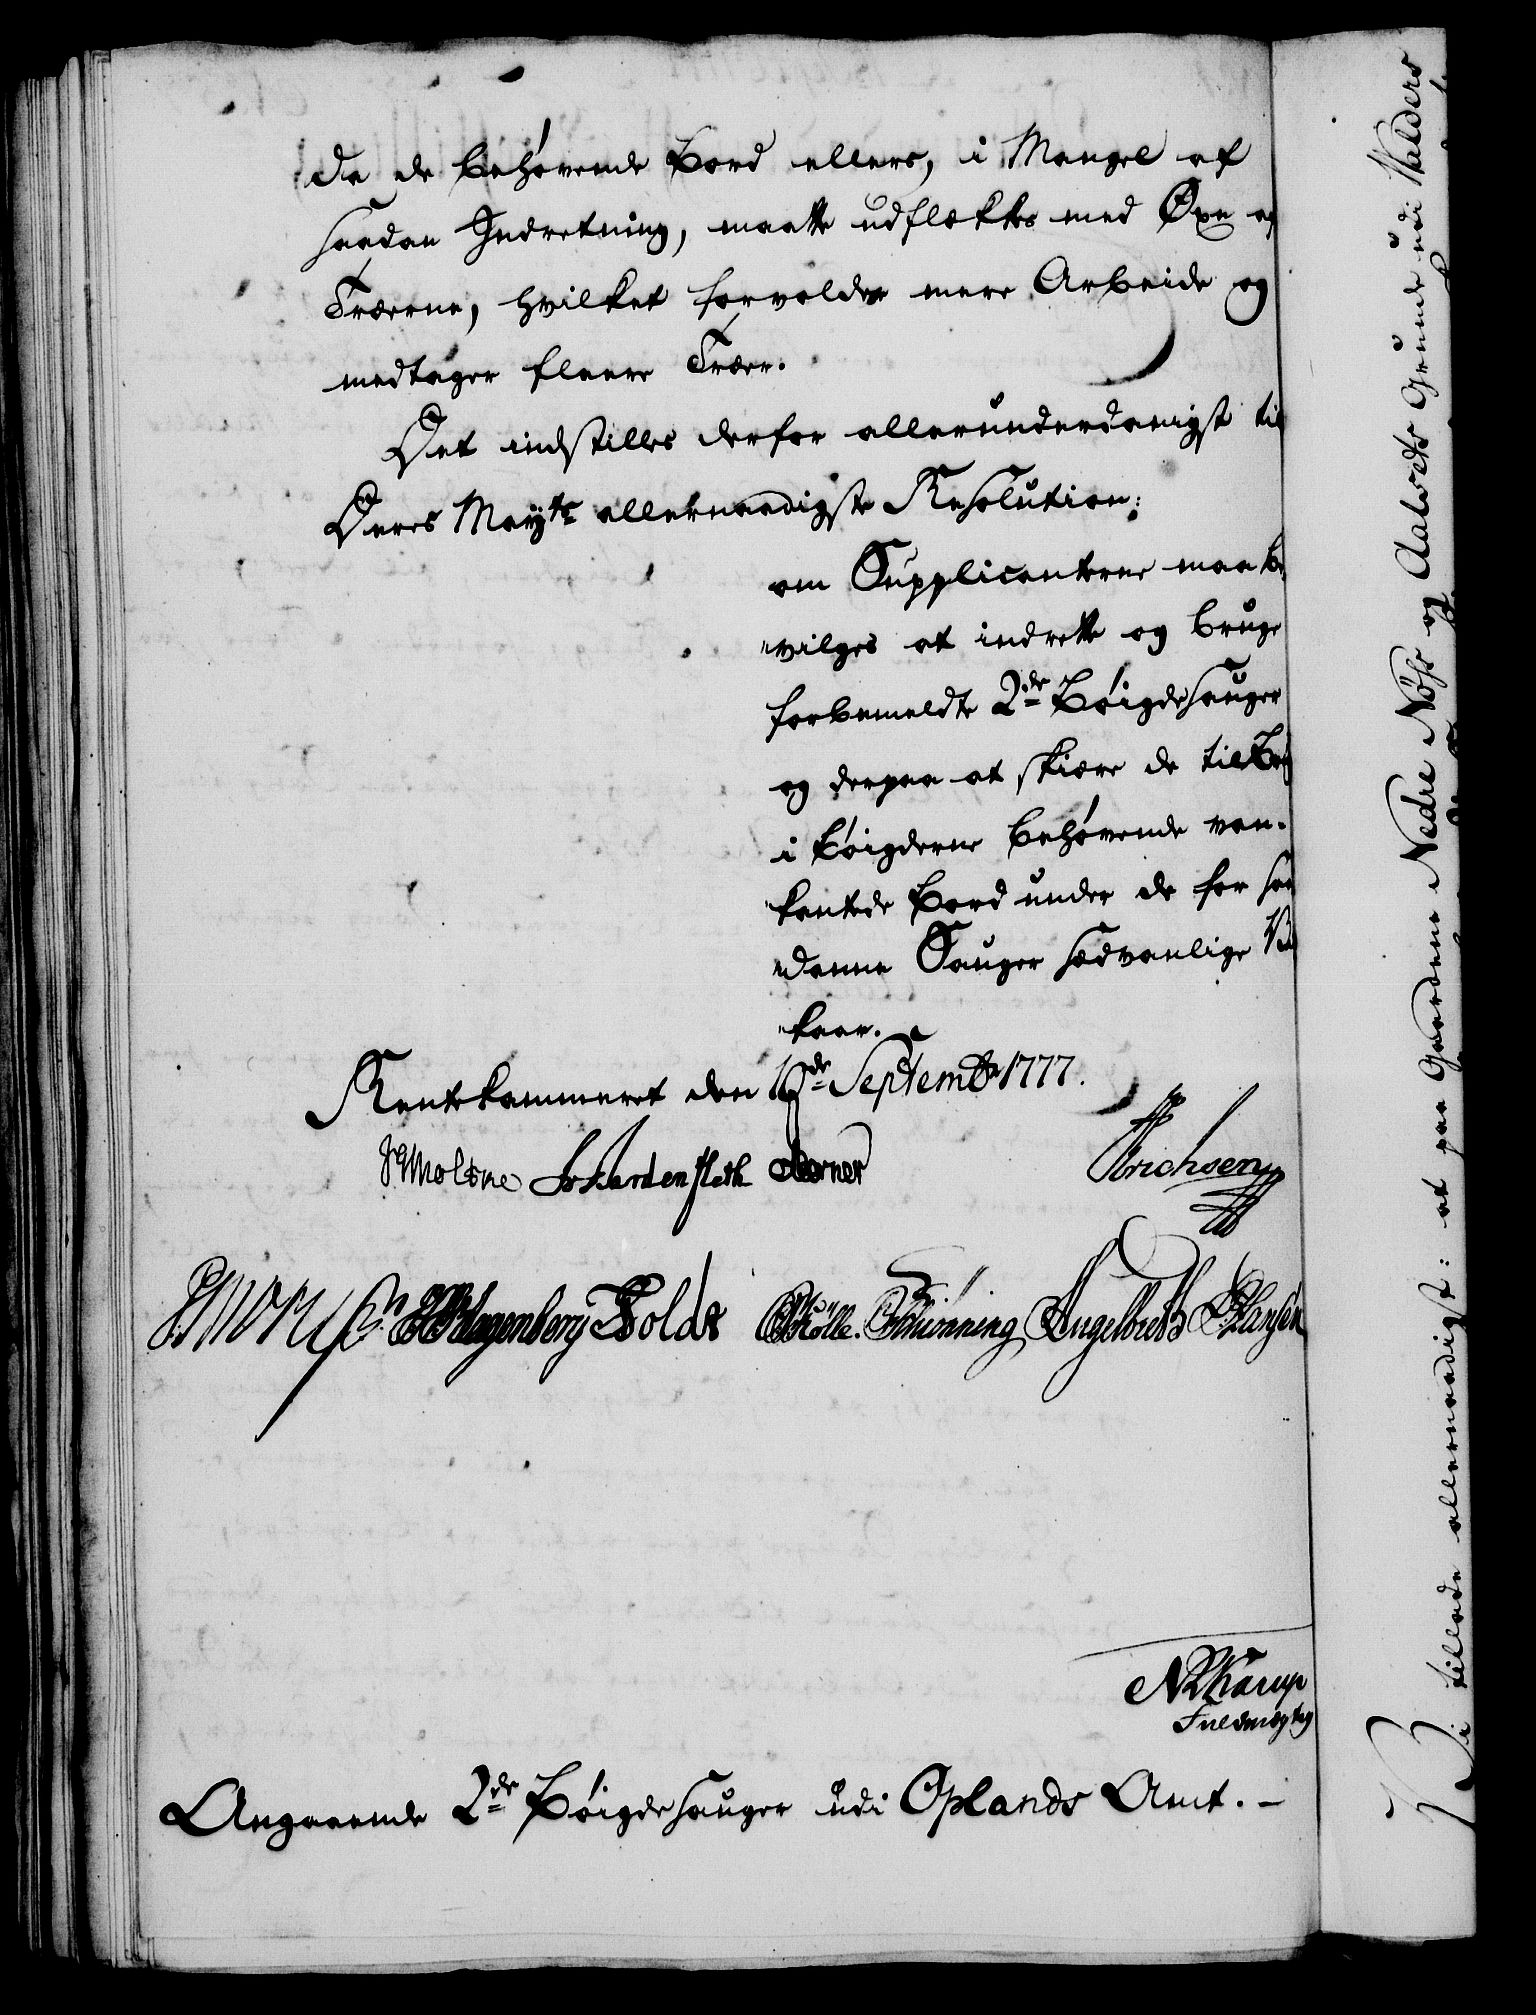 da de behøvende Bord ellers, i Mangel af
saadan Indretning, maatte udflækkes med Øxe af
Træerne, hvilket forvolder mere Arbeide og
medtager fleere Træer.
Det indstilles derfor allerunderdanigst til
Deres Mayts allernaadigste Resolution:
om Supplicanterne maa be
vilges at indrette og bruge
forbemeldte 2de Bøigdesauger
og derpaa at skiære de til
i Bøigderne behøvende van-
kantede Bord under de for saa
danne Sauger sædvanlige Vil
kaar.
Rentekammeret den Septembr 1777.
Moltke Hardenfleth Berner Erichsen
Hagenberg Selder Rølle. Schiønning Angelbreth Hansen
Karup
Fuldmægtig
Angaaende 2de Bøigdesauger udi Oplands Amt. -
Vi tillade allernaadigst: at paa Gaardene Nedre Nøss og Aalvets Grunde udi Walders